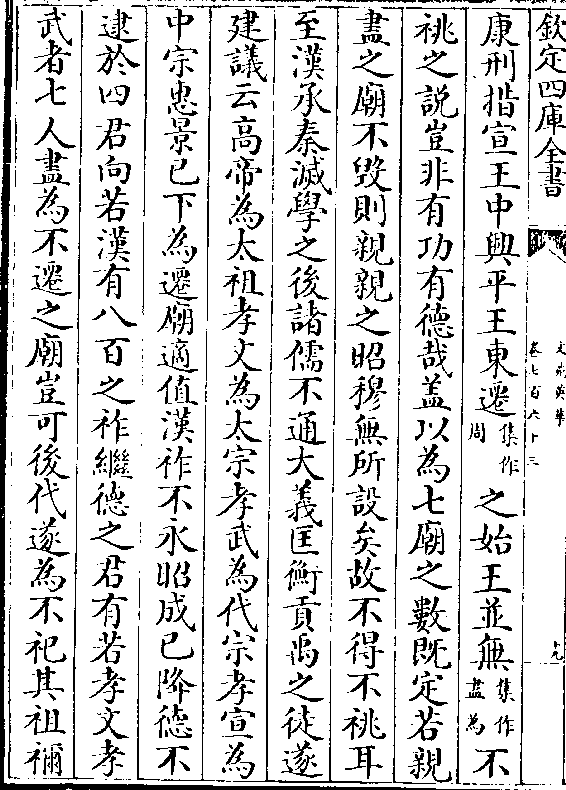 欽定四庫全書
文苑英華
卷七百六十三
十九
康刑措宣王中興平王東遷集作周之始王並無集作盡為不
祧之說豈非有功有德哉盖以為七廟之數既定若親
盡之廟不毀則親親之昭穆無所設矣故不得不祧耳
至漢承秦滅學之後諸儒不通大義匡衡貢禹之徒遂
建議云高帝為太祖孝文為太宗孝武為代宗孝宣為
中宗惠景已下為遷廟適值漢祚不永昭成已降德不
逮於四君向若漢有八百之祚繼德之君有若孝文孝
武者七人盡為不遷之廟豈可後代遂為不祀其祖禰